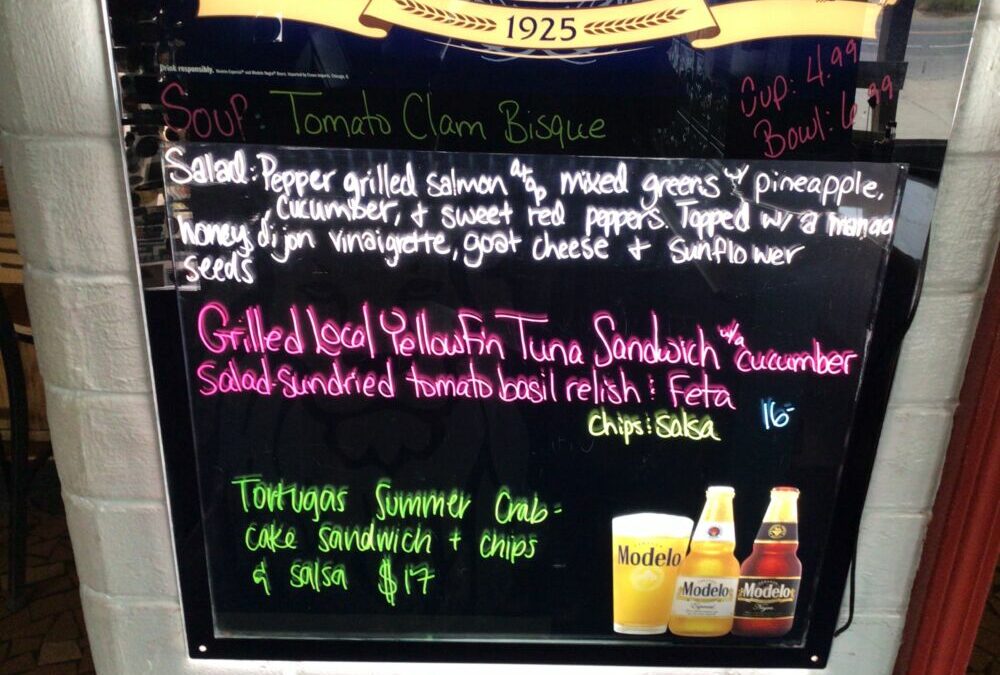 1925
Drink responsibly.
Soup: Tomato Clam Bisque
Cup: 4.99
Bowl: 6.99
Salad: Pepper grilled salmon atop mixed greens w/ pineapple,
cucumber, & sweet red peppers. Topped w/ a mango
honey dijon vinaigrette, goat cheese + sunflower
seeds
Grilled Local Yellowfin Tuna Sandwich w/a cucumber
Salad-sundried tomato basil relish & Feta
chips & salsa 16-
Tortugas Summer Crab-
cake sandwich + chips
& salsa $17
Modelo
Modelo
Especial
Modelo
Negra